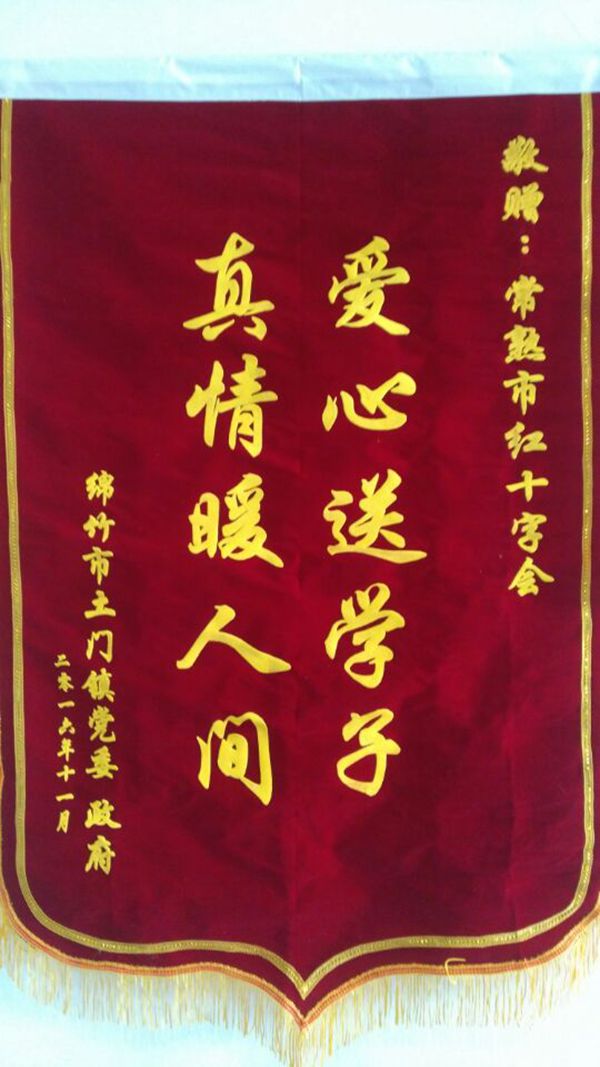 敬赠：常熟市红十字会
爱心送学子
真情暖人间
绵竹市土门镇党委 政府
二零一六年十一月